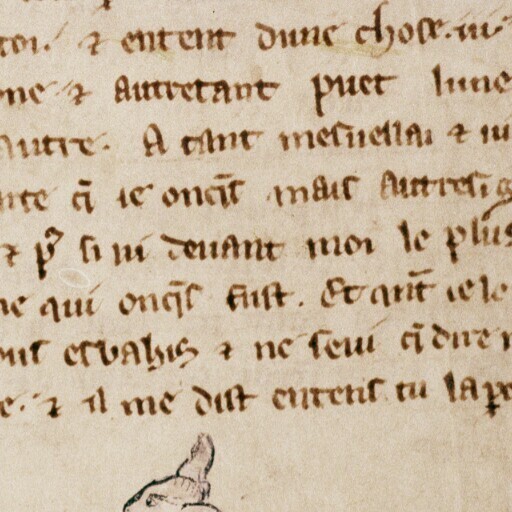 toi. ⁊ entent dune chose .iii.
ne ⁊ autretant puet lune
autre. A tant mesueillai ⁊ ui
arte q̃ ie onq̃s mais autresi g
⁊ p̃ si ui deuant moi le plus
ne qui onq̃s fust. Et qñt ie le
ous esbahis ⁊ ne seui q̃ dire n
e. ⁊ il me dist entens tu la pe